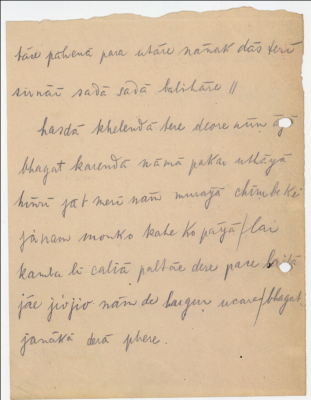 tāre pāhenā para utāre nānak dās terī
sirnāī sadā sadā balihāre ||
hasdā khelendā tere deore nūṇ āyā
bhagat karendā nāmā pakar uthāyā
hīnrī jāt merī nām murāyā chīmbe ke
jānam monko kahe ko pāyā / lai
kamba lī caliā paltāe dere pare baitā
jāe jiojio nām de haegun ucare / bhagat
janākā derā phere.